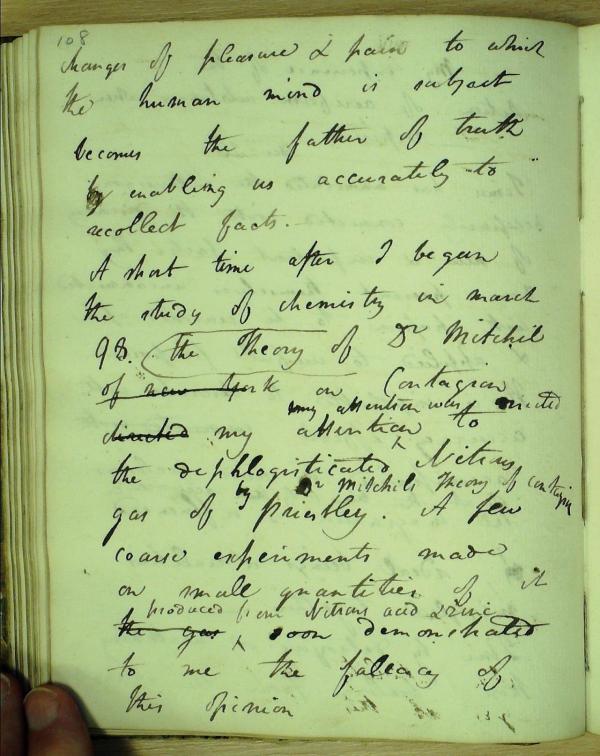 108
changes of pleasure & pain to which
the human mind is subject
becomes the father of truth
by enabling us accurately to
recollect facts. -
A short time after I began
the study of chemistry in march
98. the Theory of Dr Mitchil
of new York on Contagion
my attention was directed
directed my attention to
the dephlogisticated Nitrous
by Dr Mitchils Theory of contagion
gas of Priestley. A few
coarse experiments made
on small quantities of it
produced from Nitrous acid & zinc
the gas soon demonstrated
to me the fallacy of
this opinion